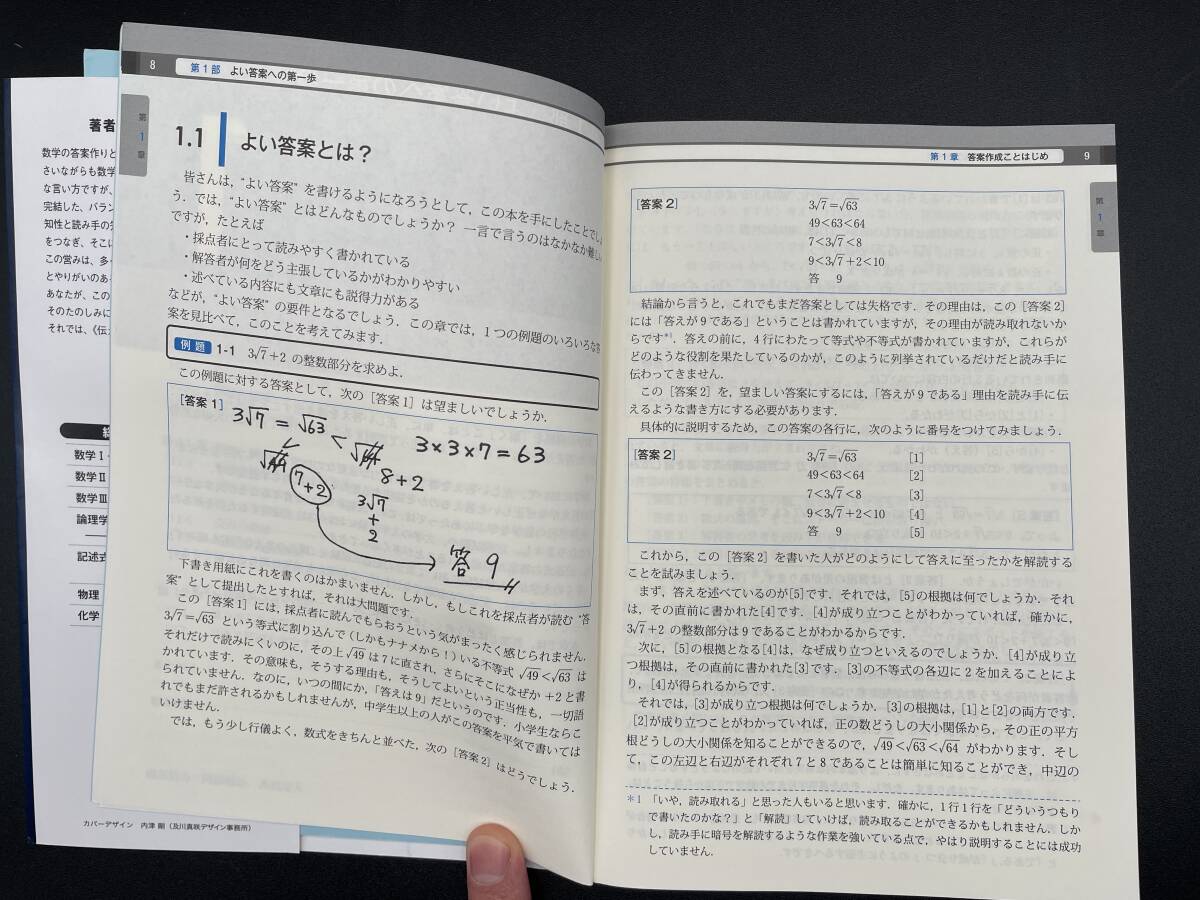 著者
数学の答案作りと
さいながらも数学
な言い方ですが、
完結した、バラン
知性と読み手の
をつなぎ、そこに
この営みは、多
とやりがいのあ
あなたが、この
そのたのしみに
それでは、《伝
数学Ⅰ
数学Ⅱ
数学Ⅲ
論理学
記述式
物理
化学
カバーデザイン 内津 剛（及川真咲デザイン事務所）
8 第1部 よい答案への第一歩
第1章
1.1 よい答案とは？
皆さんは，“よい答案”を書けるようになろうとして，この本を手にしたことでしょ
う．では，“よい答案”とはどんなものでしょうか？ 一言で言うのはなかなか難しい
ですが，たとえば
・採点者にとって読みやすく書かれている
・解答者が何をどう主張しているかがわかりやすい
・述べている内容にも文章にも説得力がある
などが，“よい答案”の要件となるでしょう．この章では，1つの例題のいろいろな答
案を見比べて，このことを考えてみます．
例題 1-1 3√7+2 の整数部分を求めよ．
この例題に対する答案として，次の［答案1］は望ましいでしょうか．
［答案1］
3√7 = √63 < √64 3×3×7=63
√49 8+2
7+2 3√7
+
2
答 9
下書き用紙にこれを書くのはかまいません．しかし，もしこれを採点者が読む“答
案”として提出したとすれば，それは大問題です．
この［答案1］には，採点者に読んでもらおうという気がまったく感じられません．
3√7=√63 という等式に割り込んで（しかもナナメから！）いる不等式 √49<√63 は
それだけで読みにくいのに，その上 √49 は7に直され，さらにそこになぜか +2 と書
かれています．その意味も，そうする理由も，そうしてよいという正当性も，一切語
られていません．なのに，いつの間にか，「答えは9」だというのです．小学生ならこ
れでもまだ許されるかもしれませんが，中学生以上の人がこの答案を平気で書いては
いけません．
では，もう少し行儀よく，数式をきちんと並べた，次の［答案2］はどうでしょう．
第1章 答案作成ことはじめ 9
第1章
［答案2］ 3√7=√63
49<63<64
7<3√7<8
9<3√7+2<10
答 9
結論から言うと，これでもまだ答案としては失格です．その理由は，この［答案2］
には「答えが9である」ということは書かれていますが，その理由が読み取れないか
らです*1．答えの前に，4行にわたって等式や不等式が書かれていますが，これらが
どのような役割を果たしているのかが，このように列挙されているだけだと読み手に
伝わってきません．
この［答案2］を，望ましい答案にするには，「答えが9である」理由を読み手に伝
えるような書き方にする必要があります．
具体的に説明するため，この答案の各行に，次のように番号をつけてみましょう．
［答案2］ 3√7=√63 [1]
49<63<64 [2]
7<3√7<8 [3]
9<3√7+2<10 [4]
答 9 [5]
これから，この［答案2］を書いた人がどのようにして答えに至ったかを解読する
ことを試みましょう．
まず，答えを述べているのが[5]です．それでは，[5]の根拠は何でしょうか．それ
は，その直前に書かれた[4]です．[4]が成り立つことがわかっていれば，確かに，
3√7+2 の整数部分は9であることがわかるからです．
次に，[5]の根拠となる[4]は，なぜ成り立つといえるのでしょうか．[4]が成り立
つ根拠は，その直前に書かれた[3]です．[3]の不等式の各辺に2を加えることによ
り，[4]が得られるからです．
それでは，[3]が成り立つ根拠は何でしょうか．[3]の根拠は，[1]と[2]の両方です．
[2]が成り立つことがわかっていれば，正の数どうしの大小関係から，その正の平方
根どうしの大小関係を知ることができるので，√49<√63<√64 がわかります．そし
て，この左辺と右辺がそれぞれ7と8であることは簡単に知ることができ，中辺の
*1 「いや，読み取れる」と思った人もいると思います．確かに，1行1行を「どういうつもり
で書いたのかな？」と「解読」していけば，読み取ることができるかもしれません．しか
し，読み手に暗号を解読するような作業を強いている点で，やはり説明することには成功
していません．